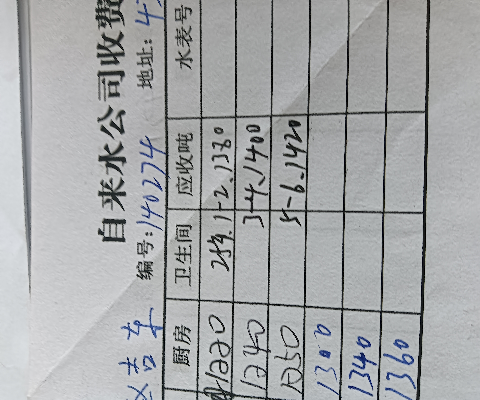 自来水公司收费
编号:140274 地址:
吉东
厨房 卫生间 应收吨 水表号
1220 1-2.1380
1240 3-4.1400
1250 5-6.1420
1300
1340
1360